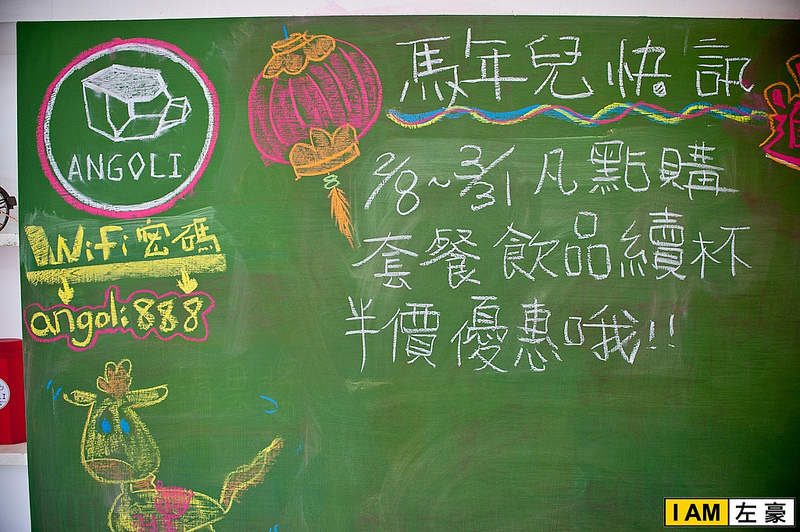 ANGOLI
WiFi密碼
angoli888
馬年兒快訊
2/8~3/31凡點購
套餐飲品續杯
半價優惠哦!!
I AM 左豪